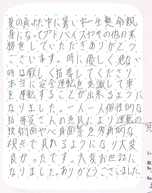 夏の真っ只中に暑い中一生懸命親
身になってアドバイスやその他の業
務をしていただきありがとう
ございます。時に優しく、危ない
時は厳しく指導してくださり
本当に安全運転を意識して車
を運転することが出来るように
なりました。一人一人個性的な
指導員さんの方により運転の技
術面や人身面等を客観的な
視点で見れるようになり大変
良かったです。大変お世話に
なりました。ありがとうござい